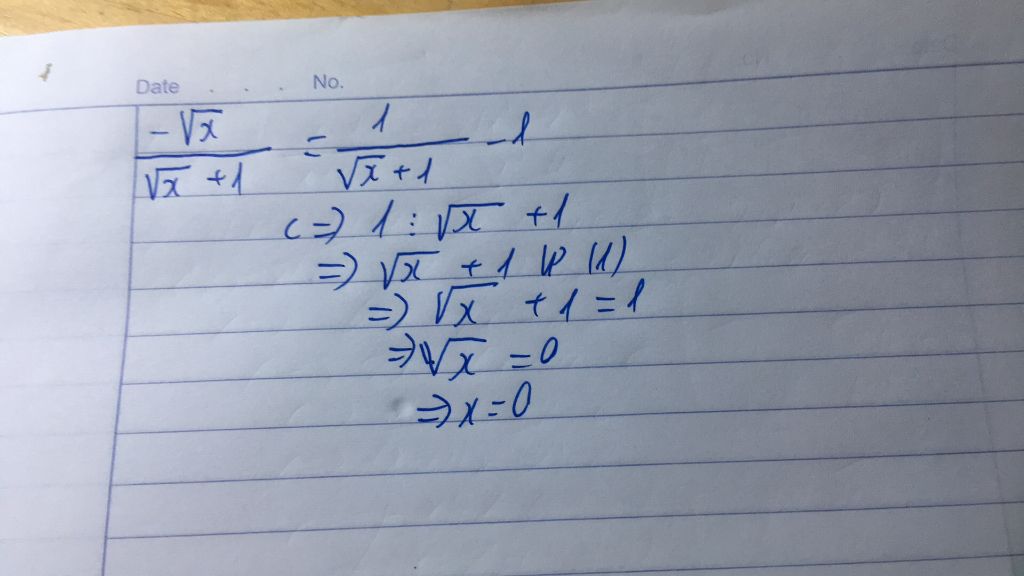 Date . . . No.
-√x / √x + 1 = 1 / √x + 1 - 1
<=> 1 ⋮ √x + 1
=> √x + 1 Ư (1)
=> √x + 1 = 1
=> √x = 0
=> x = 0